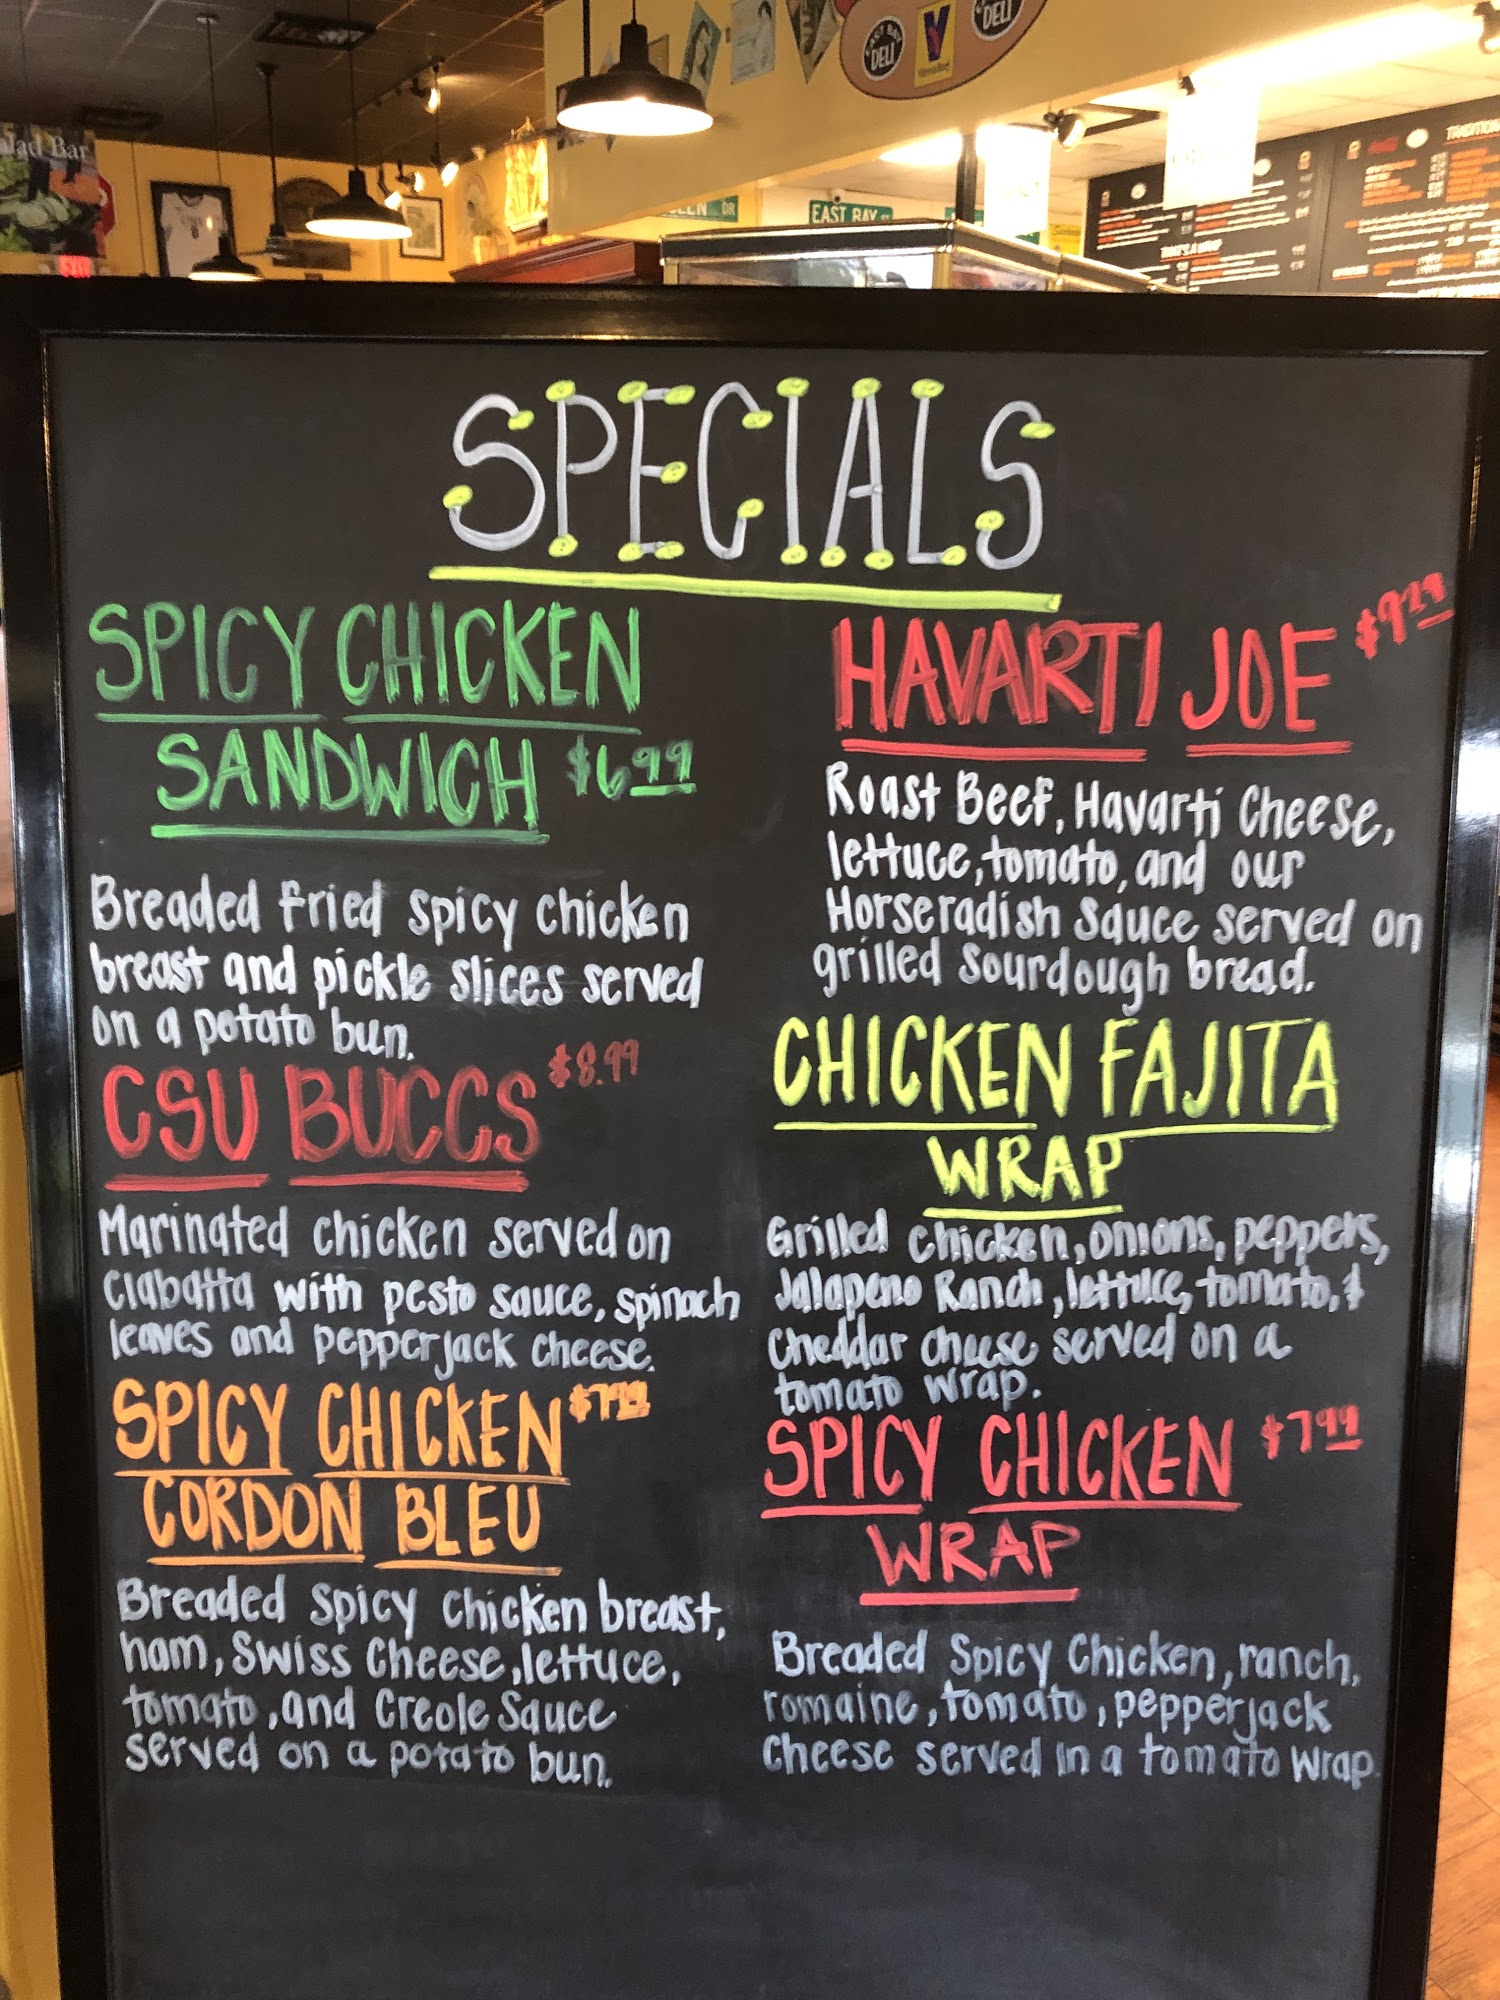 Salad Bar
EXIT
EAST BAY
DELI
V
DELI
DR
EAST BAY ST
SPECIALS
SPICY CHICKEN
SANDWICH $6.99
Breaded fried spicy chicken
breast and pickle slices served
on a potato bun.
CSU BUCCS $8.99
Marinated chicken served on
Ciabatta with pesto sauce, spinach
leaves and pepperjack cheese.
SPICY CHICKEN $7.99
CORDON BLEU
Breaded Spicy Chicken breast,
ham, Swiss Cheese, lettuce,
tomato, and Creole Sauce
served on a potato bun.
HAVARTI JOE
Roast Beef, Havarti Cheese,
lettuce, tomato, and our
Horseradish Sauce served on
grilled Sourdough bread.
CHICKEN FAJITA
WRAP
Grilled chicken, onions, peppers,
Jalapeno Ranch, lettuce, tomato, &
Cheddar cheese served on a
tomato wrap.
SPICY CHICKEN $7.99
WRAP
Breaded Spicy Chicken, ranch,
romaine, tomato, pepperjack
Cheese served in a tomato wrap.